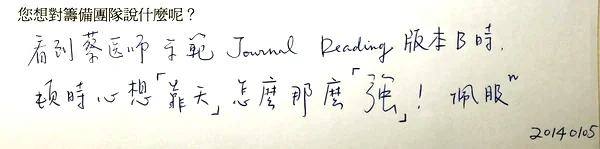 您想對籌備團隊說什麼呢？
看到蔡医师示範 Journal Reading 版本B時，
頓時心想「靠天」怎麼那麼「強」！佩服ⁿ
20140105